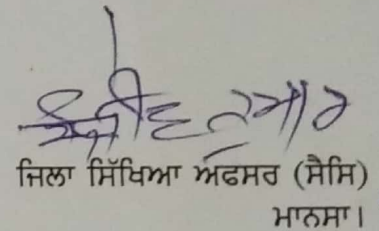 ਜਿਲਾ ਸਿੱਖਿਆ ਅਫਸਰ (ਸੈਸਿ)
ਮਾਨਸਾ।